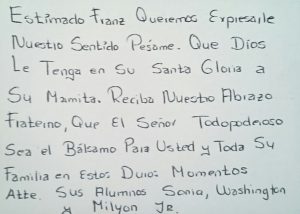 Estimado Franz Queremos Expresarle
Nuestro Sentido Pesame. Que Dios
Le Tenga en Su Santa Gloria a
Su Mamita. Reciba Nuestro Abrazo
Fraterno, Que El Señor Todopoderoso
Sea el Bálsamo Para Usted y Toda Su
Familia en Estos Duros Momentos
Atte. Sus Alumnos Sonia, Washington
y Milyon Jr.